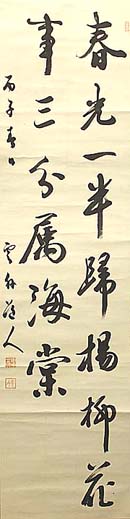 春光一半歸楊柳花
事三分屬海棠
丙子春日
雲外釣人